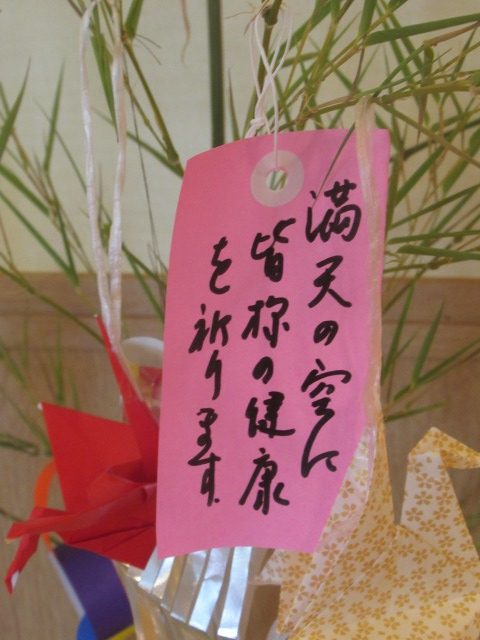 満天の空に
皆様の健康
を祈ります。